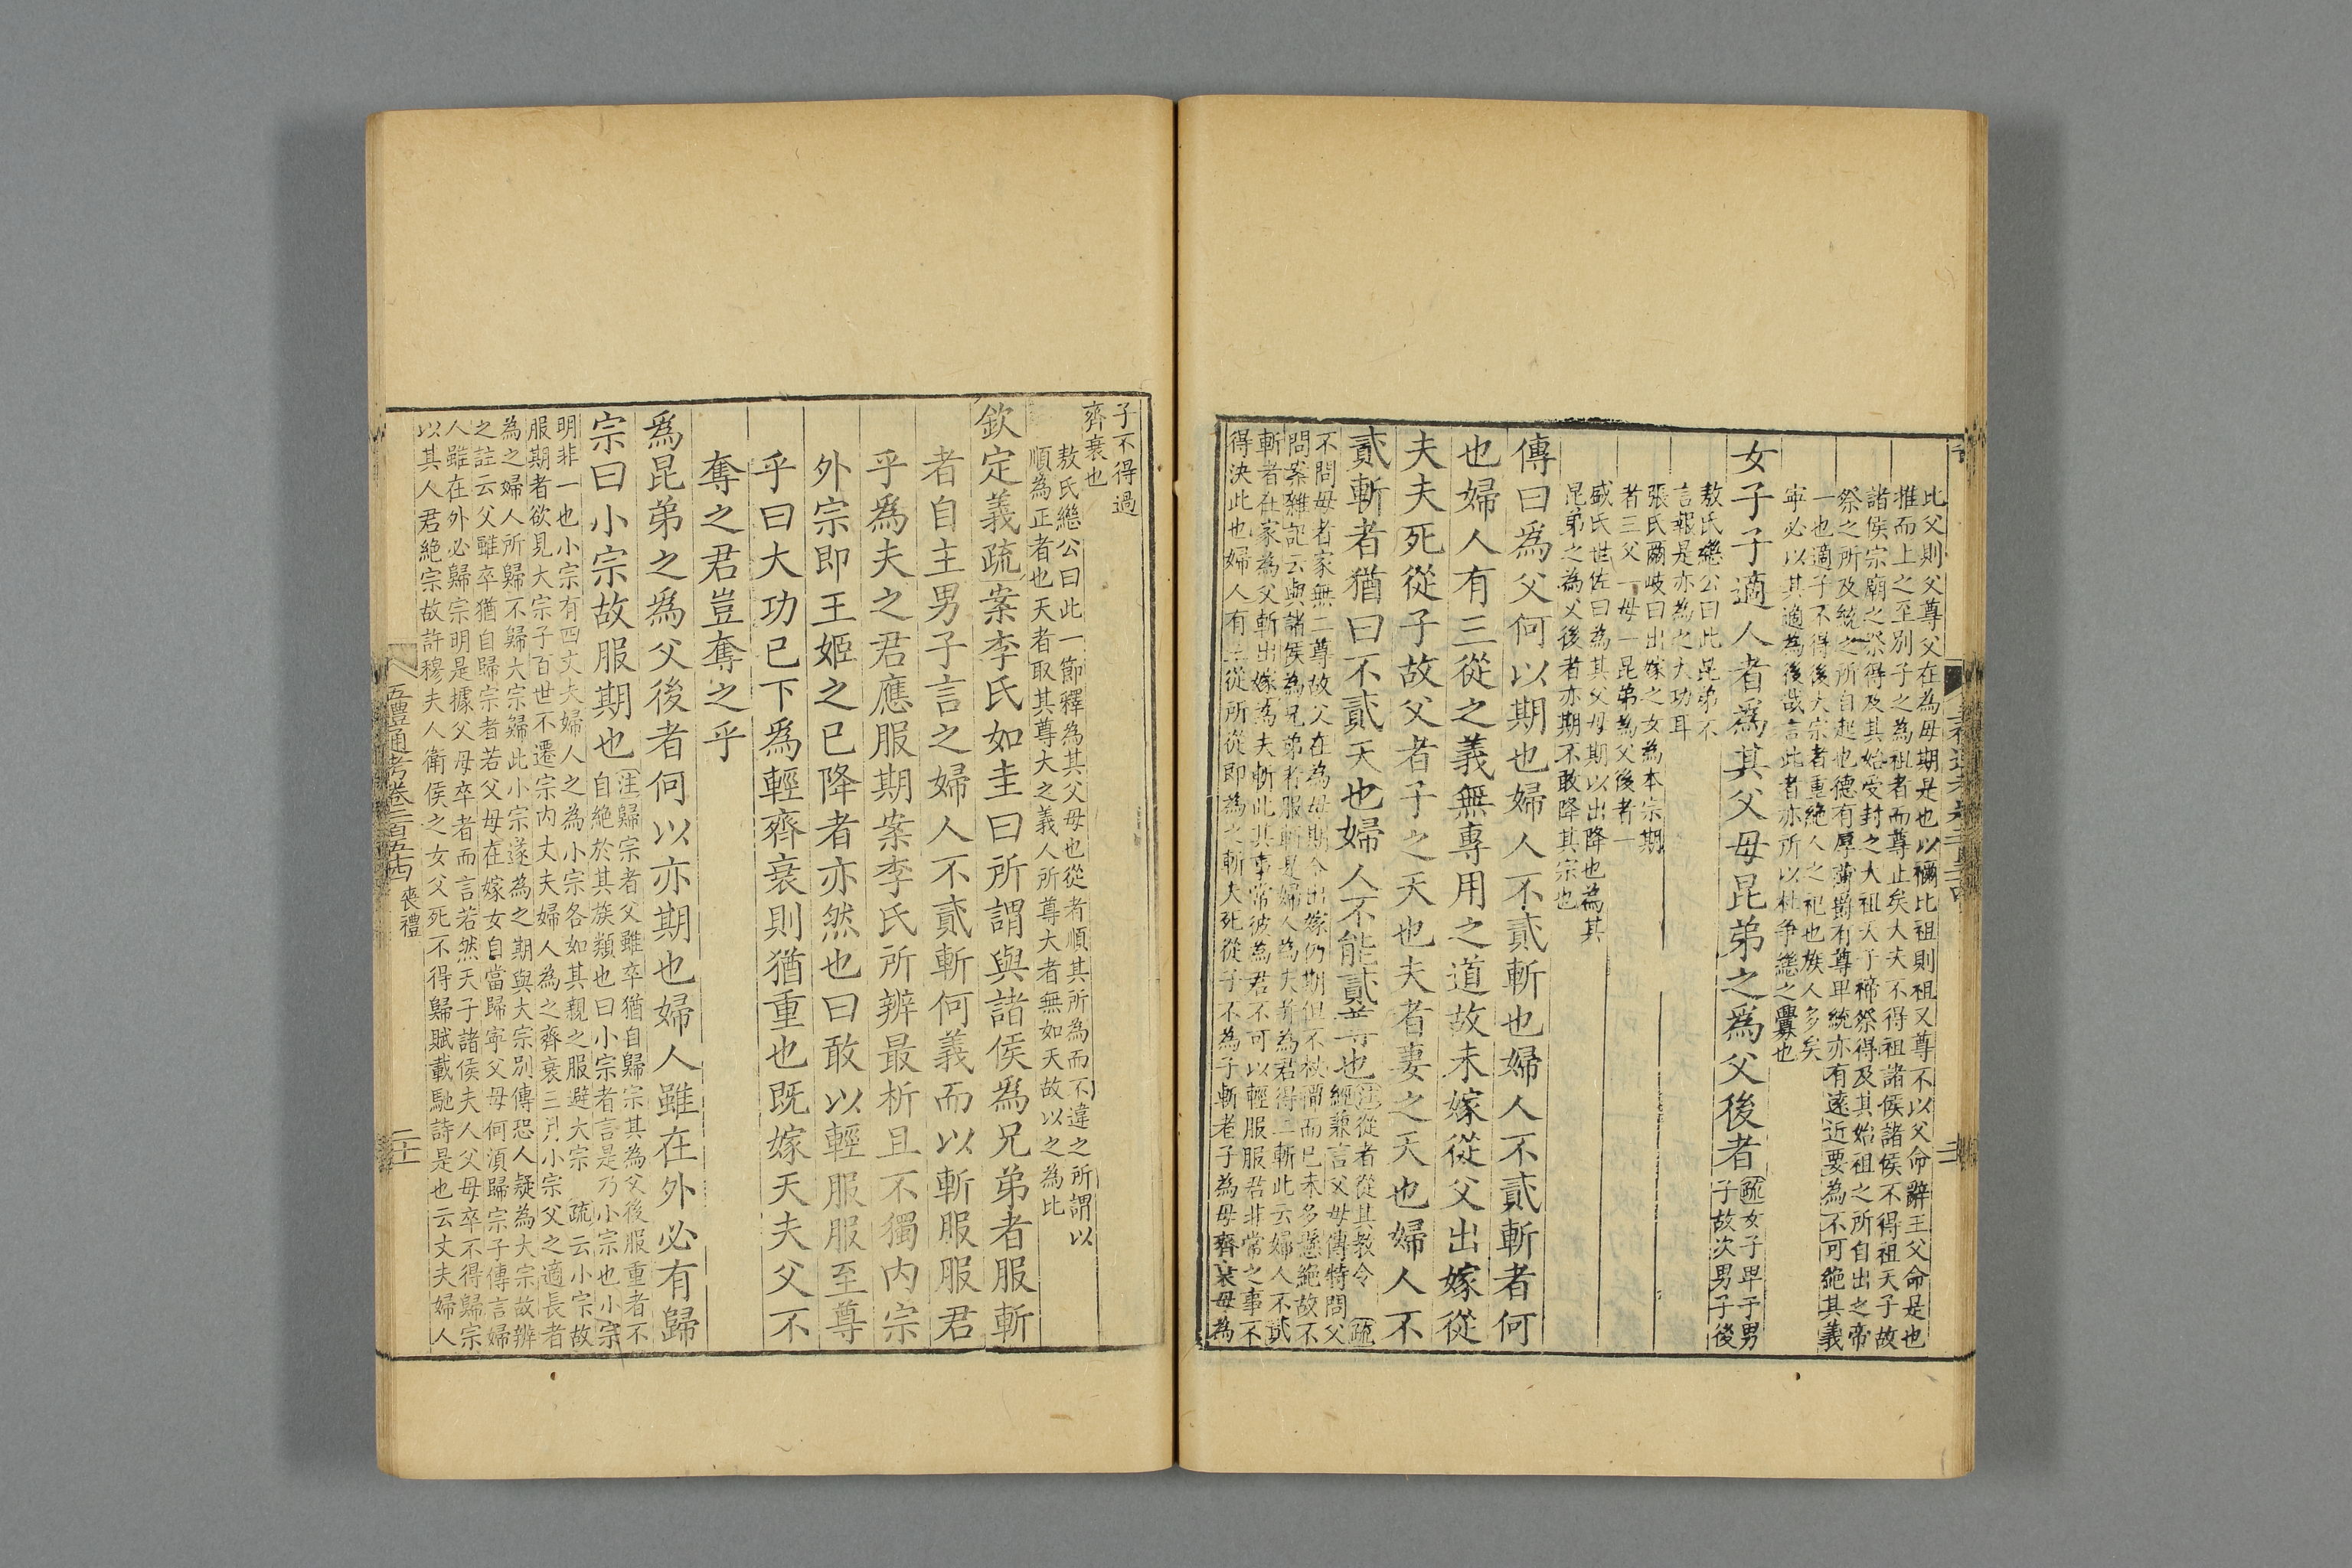 比父則父尊父在為母期是也以禰比祖則祖又尊不以父命辭王父命是也
推而上之至別子之為祖者而尊止矣大夫不得祖諸侯諸侯不得祖天子故
諸侯宗廟之祭得及其始受封之大祖天子禘祭得及其始祖之所自出之帝
祭之所及統之所自起也德有厚薄爵有尊卑統亦有遠近要為不可絕其義
一也適子不得後大宗者重絕人之祀也族人多矣
寧必以其適為後哉言此者亦所以杜爭繼之釁也
女子子適人者為其父母昆弟之為父後者
疏女子卑于男
子故次男子後
敖氏繼公曰此昆弟不
言報是亦為之大功耳
張氏爾岐曰出嫁之女為本宗期
者三父一母一昆弟為父後者一
盛氏世佐曰為其父母期以出降也為其
昆弟之為父後者亦期不敢降其宗也
傳曰為父何以期也婦人不貳斬也婦人不貳斬者何
也婦人有三從之義無專用之道故未嫁從父出嫁從
夫夫死從子故父者子之天也夫者妻之天也婦人不
貳斬者猶曰不貳天也婦人不能貳尊也
注從者從其教令 疏
經兼言父母傳特問父
不問母者家無二尊故父在為母期今出嫁仍期但不杖禫而已未多懸絕故不
問案雜記云與諸侯為兄弟者服斬是婦人為夫并為君得二斬此云婦人不貳
斬者在家為父斬出嫁為夫斬此其事常彼為君不可以輕服服君非常之事不
得決此也婦人有三從所從即為之斬夫死從子不為子斬者子為母齊衰母為
子不得過
齊衰也
敖氏繼公曰此一節釋為其父母也從者順其所為而不違之所謂以
順為正者也天者取其尊大之義人所尊大者無如天故以之為比
欽定義疏案李氏如圭曰所謂與諸侯為兄弟者服斬
者自主男子言之婦人不貳斬何義而以斬服服君
乎為夫之君應服期案李氏所辨最析且不獨內宗
外宗即王姬之已降者亦然也曰敢以輕服服至尊
乎曰大功已下為輕齊衰則猶重也既嫁天夫父不
奪之君豈奪之乎
為昆弟之為父後者何以亦期也婦人雖在外必有歸
宗曰小宗故服期也
注歸宗者父雖卒猶自歸宗其為父後服重者不
自絕於其族類也曰小宗者言是乃小宗也小宗
明非一也小宗有四丈夫婦人之為小宗各如其親之服避大宗 疏云小宗故
服期者欲見大宗子百世不遷宗內丈夫婦人為之齊衰三月小宗父之適長者
為之婦人所歸不歸大宗歸此小宗遂為之期與大宗別傳恐人疑為大宗故辨
之註云父雖卒猶自歸宗者若父母在嫁女自當歸寧父母何須歸宗子傳言婦
人雖在外必歸宗明是據父母卒者而言若然天子諸侯夫人父母卒不得歸宗
以其人君絕宗故許穆夫人衛侯之女父死不得歸賦載馳詩是也云丈夫婦人
五禮通考卷二百五十四 喪禮
二十